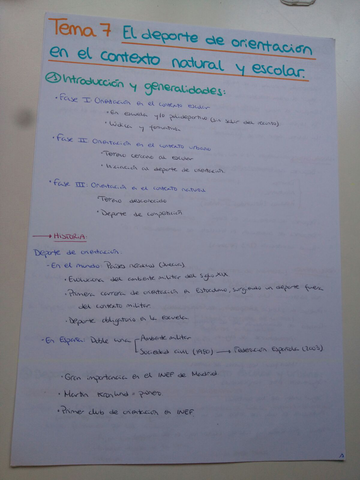 Tema 7 El deporte de orientación
en el contexto natural y escolar.
① Introducción y generalidades:
· Fase I: Orientación en el contexto escolar
· En escuela y/o polideportivo (sin salir del centro)
· Lúdica y
· Fase II: Orientación en el contexto urbano
· Terreno cercano al escolar
· Iniciación al deporte de orientación
· Fase III: Orientación en el contexto natural
· Terreno desconocido
· Deporte de competición
→ HISTORIA:
Deporte de orientación:
· En el mundo: Países nórdicos
· Evolución del ambiente militar del siglo XIX
· Primera carrera de orientación en Estocolmo, surgiendo un deporte fuera
del contexto militar
· Deporte obligatorio en la escuela
· En España: Doble línea
Ambiente militar
Sociedad civil → Federación Española
· Gran importancia en el INEF de Madrid.
· Martin
· Primer club de orientación en INEF